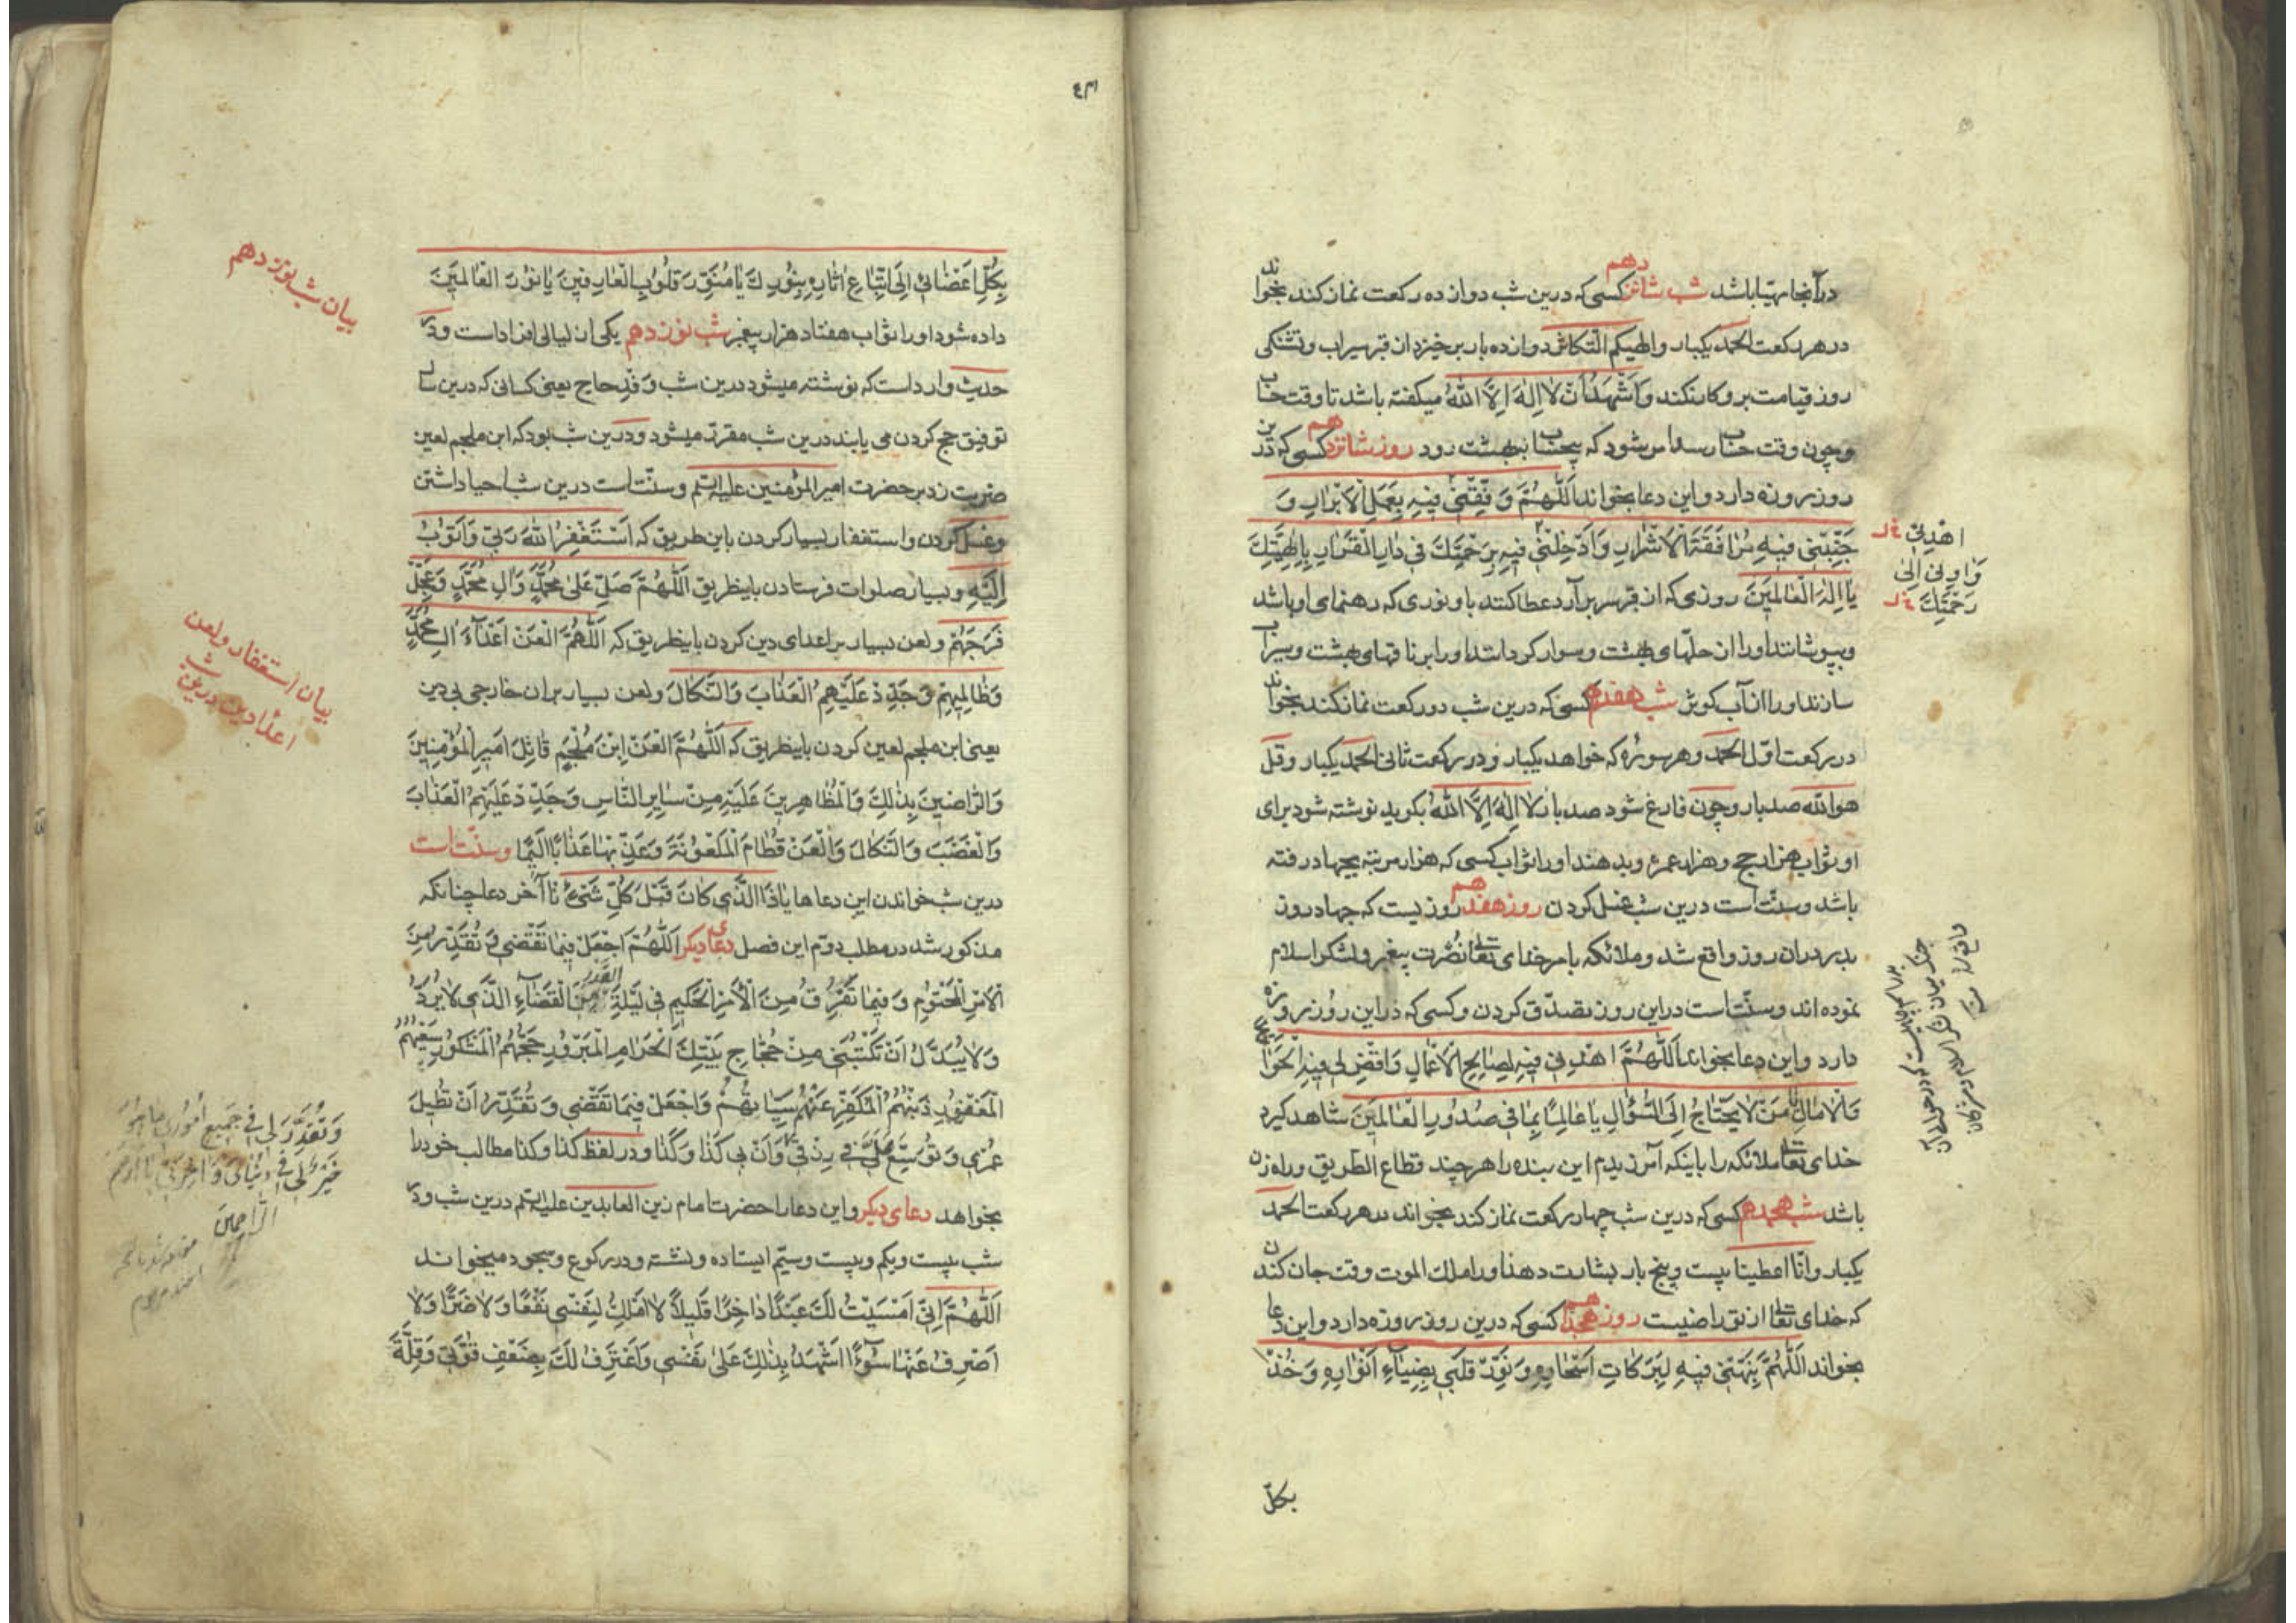 درآنجا مهیّا باشد شب شانزدهم کسی که درین شب دوازده رکعت نماز کند بخواند
در هر رکعت الحمد یکبار و الهیکم التکاثر دوازده بار برخیزد از قبر سیراب و تشنکی
روز قیامت برو کار نکند وَاَشْهَدُ اَنْ لٰا اِلٰهَ اِلَّا اللّٰهُ میکفته باشد تا وقت حساب
و چون وقت حساب شود که بیحساب ببهشت رود روز شانزدهم کسی که درین
روز روزه دارد و این دعا بخواند اَللّٰهُمَّ وَفِّقْنی فیهِ بِعَمَلِ الْاَبْرٰارِ وَ
جَنِّبْنی فیهِ مُرٰافَقَةَ الْاَشْرٰارِ وَاَدْخِلْنی فیهِ بِرَحْمَتِكَ فی دٰارِ الْقَرٰارِ بِاِلٰهِیَّتِكَ
یٰا اِلٰهَ الْعٰالَمینَ روزی که از قبر سر برآرد عطا کنند باو نوری که رهنمای او باشد
و بپوشانند اورا از حلّهای بهشت و سوار کردانند اورا بر ناقهای بهشت و سیراب
سازند اورا از آب کوثر شب هفدهم کسی که درین شب دو رکعت نماز کند بخواند
در رکعت اوّل الحمد و هر سوره که خواهد یکبار و در رکعت ثانی الحمد یکبار و قل
هو اللّه صد بار و چون فارغ شود صد بار لٰا اِلٰهَ اِلَّا اللّٰهُ بکوید نوشته شود برای
او ثواب هزار حج و هزار عمره و بدهند اورا ثواب کسی که هزار مرتبه بجهاد رفته
باشد و سنّت است درین شب غسل کردن روز هفدهم روزیست که جهاد روز
بدر دران روز واقع شد و ملائکه بامر خدای تعالی نصرت پیغمبر و لشکر اسلام
نموده اند و سنّت است در این روز تصدّق کردن و کسی که در این روز روزه
دارد و این دعا بخواند اَللّٰهُمَّ اهْدِنی فیهِ لِصٰالِحِ الْاَعْمٰالِ وَاقْضِ لی فیهِ الْحَوٰائِجَ
وَالْاٰمٰالَ یٰا مَنْ لٰا یَحْتٰاجُ اِلَی السُّؤٰالِ یٰا عٰالِمًا بِمٰا فی صُدُورِ الْعٰالَمینَ شاهد کیرد
خدای تعالی ملائکه را باینکه آمرزیدم این بنده را هر چند قطاع الطریق و راه زن
باشد شب هجدهم کسی که درین شب چهار رکعت نماز کند بخواند در هر رکعت الحمد
یکبار و انّا اعطینا بیست و پنج بار بشارت دهند اورا ملك الموت وقت جان کندن
که خدای تعالی از تو راضیست روز هجدهم کسی که درین روز روزه دارد و این دعا
بخواند اَللّٰهُمَّ نَبِّهْنی فیهِ لِبَرَکٰاتِ اَسْحٰارِهِ وَنَوِّرْ قَلْبی بِضِیٰاءِ اَنْوٰارِهِ وَخُذْ
بکلّ
اهْدِنی خ‌ل
وَاٰوِنی اِلیٰ
رَحْمَتِكَ خ‌ل
بِکُلِّ اَعْضٰائی اِلَی اتِّبٰاعِ اٰثٰارِهِ بِنُورِكَ یٰا مُنَوِّرَ قُلُوبِ الْعٰارِفینَ یٰا نُورَ الْعٰالَمینَ
داده شود اورا ثواب هفتاد هزار پیغمبر شب نوزدهم یکی از لیالی افراد است و در
حدیث وارد است که نوشته میشود درین شب وَفْدِ حاج یعنی کسانی که درین سال
توفیق حج کردن می یابند درین شب مقرّر میشود و درین شب بود که ابن ملجم لعین
ضربت زد بر حضرت امیر المؤمنین علیه السّلم و سنّت است درین شب احیا داشتن
و غسل کردن و استغفار بسیار کردن باین طریق که اَسْتَغْفِرُ اللّٰهَ رَبّی وَاَتُوبُ
اِلَیْهِ و بسیار صلوات فرستادن باینطریق اَللّٰهُمَّ صَلِّ عَلیٰ مُحَمَّدٍ وَاٰلِ مُحَمَّدٍ وَعَجِّلْ
فَرَجَهُمْ و لعن بسیار بر اعدای دین کردن باینطریق که اَللّٰهُمَّ الْعَنْ اَعْدٰاءَ اٰلِ مُحَمَّدٍ
وَظٰالِمیهِمْ وَجَدِّدْ عَلَیْهِمُ الْعَذٰابَ وَالنَّکٰالَ و لعن بسیار بران خارجی بی دین
یعنی ابن ملجم لعین کردن باینطریق که اَللّٰهُمَّ الْعَنْ اِبْنَ مُلْجَمٍ قٰاتِلَ اَمیرِ الْمُؤْمِنینَ
وَالرّٰاضینَ بِذٰلِكَ وَالْمُظٰاهِرینَ عَلَیْهِ مِنْ سٰایِرِ النّٰاسِ وَجَدِّدْ عَلَیْهِمُ الْعَذٰابَ
وَالْغَضَبَ وَالنَّکٰالَ وَالْعَنْ قُطٰامَ الْمَلْعُونَةَ وَعَذِّبْهٰا عَذٰابًا اَلیمًا و سنّت است
درین شب خواندن این دعاها یٰا ذَا الَّذی کٰانَ قَبْلَ کُلِّ شَیْءٍ تا آخر دعا چنانکه
مذکور شد در مطلب دوّم این فصل دعای دیکر اَللّٰهُمَّ اجْعَلْ فیمٰا تَقْضی وَتُقَدِّرُ مِنَ
الْاَمْرِ الْمَحْتُومِ وَفیمٰا تَفْرُقُ مِنَ الْاَمْرِ الْحَکیمِ فی لَیْلَةِ الْقَدْرِ مِنَ الْقَضٰاءِ الَّذی لٰا یُرَدُّ
وَلٰا یُبَدَّلُ اَنْ تَکْتُبَنی مِنْ حُجّٰاجِ بَیْتِكَ الْحَرٰامِ الْمَبْرُورِ حَجُّهُمُ الْمَشْکُورِ سَعْیُهُمُ
الْمَغْفُورِ ذَنْبُهُمُ الْمُکَفَّرِ عَنْهُمْ سَیِّاٰتُهُمْ وَاجْعَلْ فیمٰا تَقْضی وَتُقَدِّرُ اَنْ تُطیلَ
عُمْری وَتُوَسِّعَ عَلَیَّ فی رِزْقی وَاَنْ بی کَذٰا وَکَذٰا و در لفظ کذا و کذا مطالب خودرا
بخواهد دعای دیکر و این دعا را حضرت امام زین العابدین علیه السّلم درین شب و در
شب بیست و یکم و بیست و سیّم ایستاده و نشسته و در رکوع و سجود میخواند
اَللّٰهُمَّ اِنّی اَمْسَیْتُ لَكَ عَبْدًا دٰاخِرًا قَلیلاً لٰا اَمْلِكُ لِنَفْسی نَفْعًا وَلٰا ضَرًّا وَلٰا
اَصْرِفُ عَنْهٰا سُوءًا اَشْهَدُ بِذٰلِكَ عَلیٰ نَفْسی وَاَعْتَرِفُ لَكَ بِضَعْفِ قُوَّتی وَقِلَّةَ
بیان شب نوزدهم
بیان استغفار و لعن
اعدا دین درین شب
وَتُقَدِّرَ لی فی جَمیعِ اُمُوری مٰا هُوَ
خَیْرٌ لی فی دُنْیٰایَ وَاٰخِرَتی یٰا اَرْحَمَ
الرّٰاحِمینَ